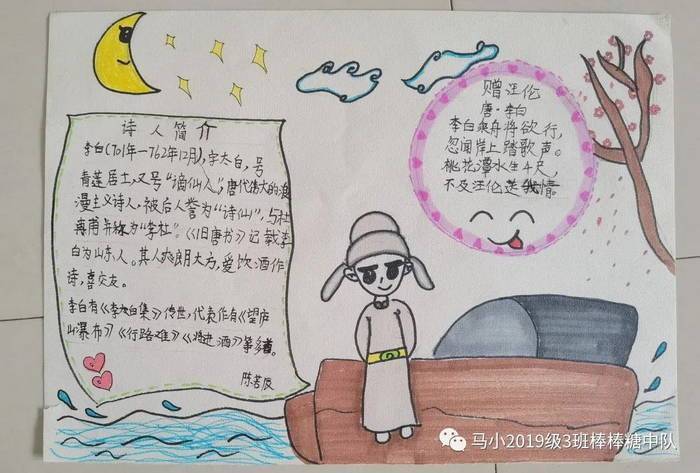 诗人简介
李白(701年—762年12月),字太白,号
青莲居士,又号“谪仙人”,唐代伟大的浪
漫主义诗人,被后人誉为“诗仙”,与杜
甫并称为“李杜”。《旧唐书》记载李
白为山东人。其人爽朗大方,爱饮酒作
诗,喜交友。
李白有《李太白集》传世,代表作有《望庐
山瀑布》《行路难》《将进酒》等多首。
赠汪伦
唐·李白
李白乘舟将欲行,
忽闻岸上踏歌声。
桃花潭水生4尺,
不及汪伦送我情。
马小2019级3班棒棒糖中队